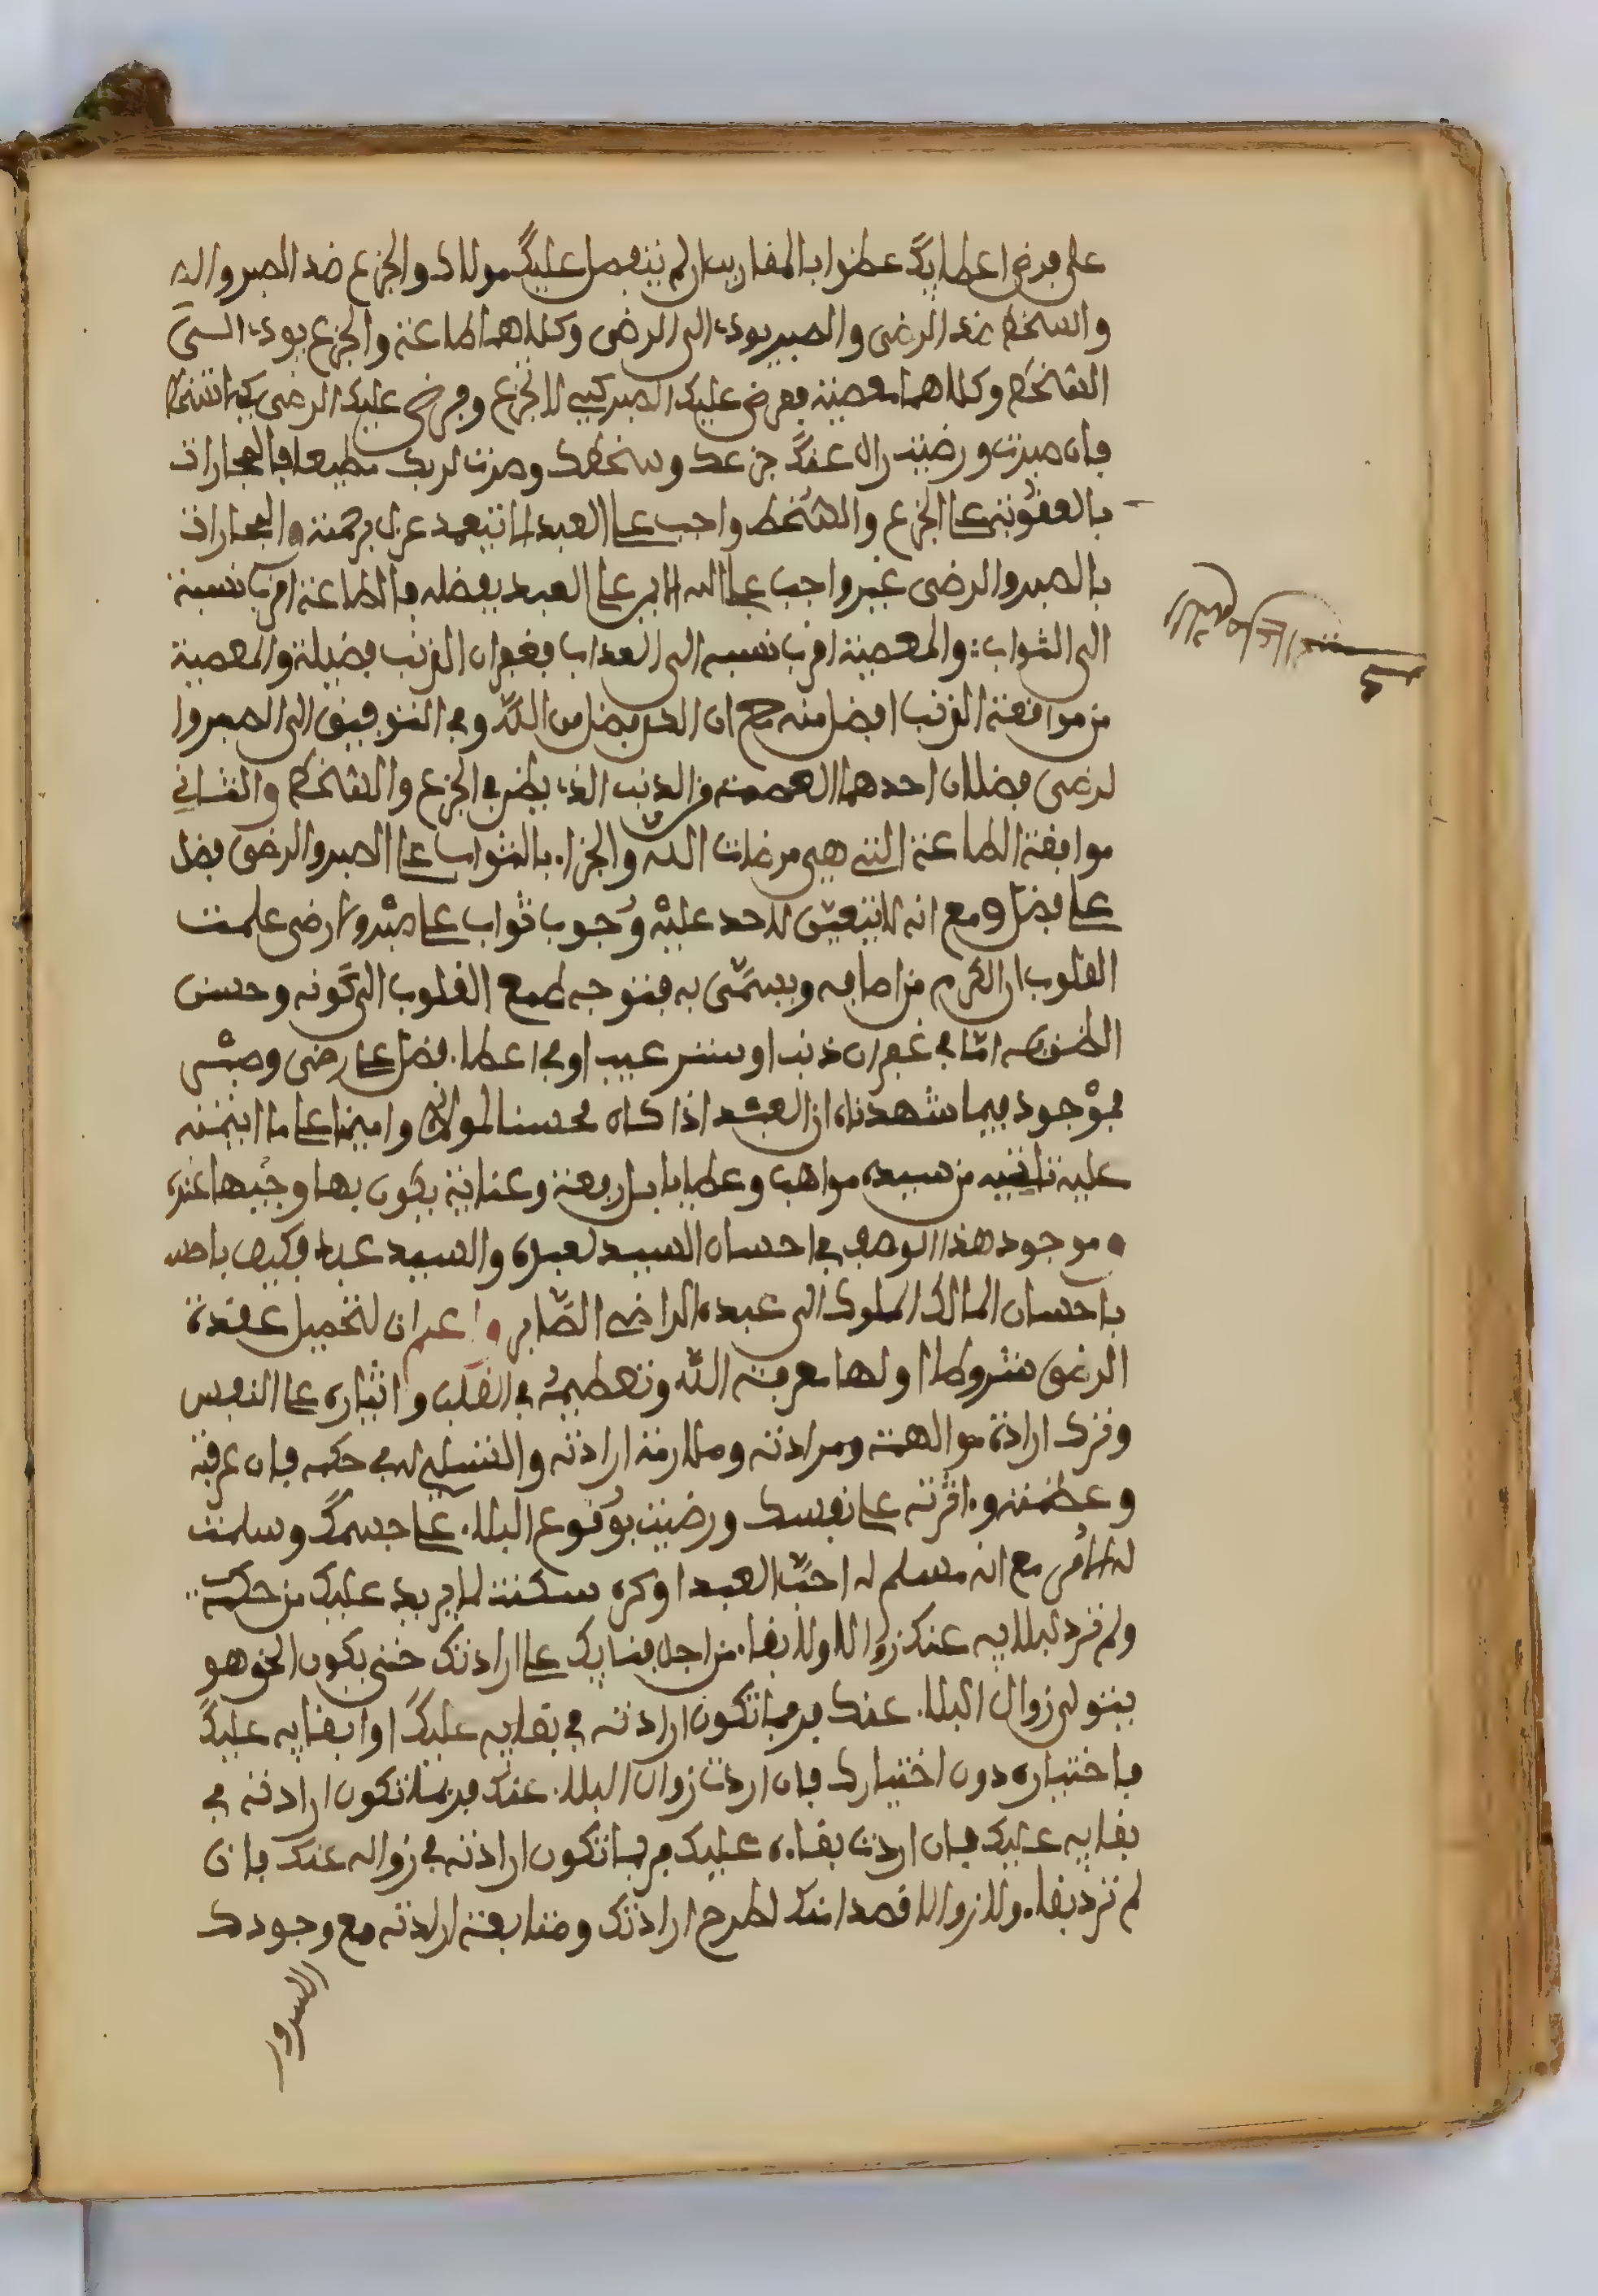 على فرض اعطايك عظوا بالمفاريت ان لم يتفضل عليك مولاك والجزع ضد الصبر
والسخط ضد الرضى والصبر يودي الى الرضى وكلاهما طاعة والجزع يودي الى
السخط وكلاهما معصية ففرض عليك الصبر كيلا تجزع وفرض عليك الرضى كيلا تسخط
فان صبرت ورضيت زال عنك جزعك وسخطك وصرت لربك مطيعا فالمجازات
بالعقوبة على الجزع والسخط واجب على العبد الا ان يتغمد عزل برحمته والمجازات
بالصبر والرضى غير واجب على الله الا ببر على العبد بفضله فالطاعة اقرب نسبة
الى الثواب والمعصية اقرب نسبة الى العذاب فغفران الذنب فضيلة والمعصية
من موافقة الذنب افضل منه مع ان الكل فضل من الله وفي التوفيق الى الصبر وا
لرضى فضلان احدهما العصمة من الذنب الذي يظهر في الجزع والسخط والثاني
موافقة الطاعة التي هي مرضات الله والجزاء بالثواب على الصبر والرضى فضل
على فضل ومع انه لا يتعين لاحد عليه وجوب ثواب على صبر ورضى علمت
القلوب ان الكرم من اوصافه ويسمى به فتوجه طمع القلوب الى كونه وحسن
الظن به اما في غفران ذنب او ستر عيب او في اعطاء فضل على رضى وصبر
موجود فيما شهدناه ان العبد اذا كان محسنا لمولاه وامينا على ما ائتمنه
عليه تاتيه من سيده مواهب وعطايا بل رفعة وعناية يكون بها وجيها عنده
وموجود هذا الوصف في احسان السيد لعبده والسيد عبد فكيف
باحسان المالك الملوك الى عبده الراضي الصابر واعلم ان لتحصيل عقدة
الرضى شروطا اولها معرفة الله وتعظيمه في القلب وايثاره على النفس
وترك ارادة مع الهمة ومرادته وملازمة ارادته والتسليم له في حكمه فان عرفته
وعظمته واثرته على نفسك ورضيت بوقوع البلاء على جسمك وسلمت
له الامر مع انه مسلم له احب العبد او كره سكنت لما يريد عليك من حكمه
ولم ترد لبلايه عنك زوالا ولا بقاء من اجل فنايك على ارادتك حتى يكون الحق هو
يتولى زوال البلاء عنك فربما تكون ارادته في بقايه عليك او ابقايه عليك
باختياره دون اختيارك فان اردت زوال البلاء عنك فربما تكون ارادته في
بقايه عليك فان اردت بقاءه عليك فربما تكون ارادته في زواله عنك فان
لم ترد بقاء ولا زوالا قصدا منك لطرح ارادتك ومتابعة ارادته مع وجودك
السرور